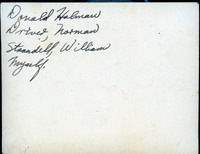 Donald Halman
Driver, Norman
Strandell, William
Myself.